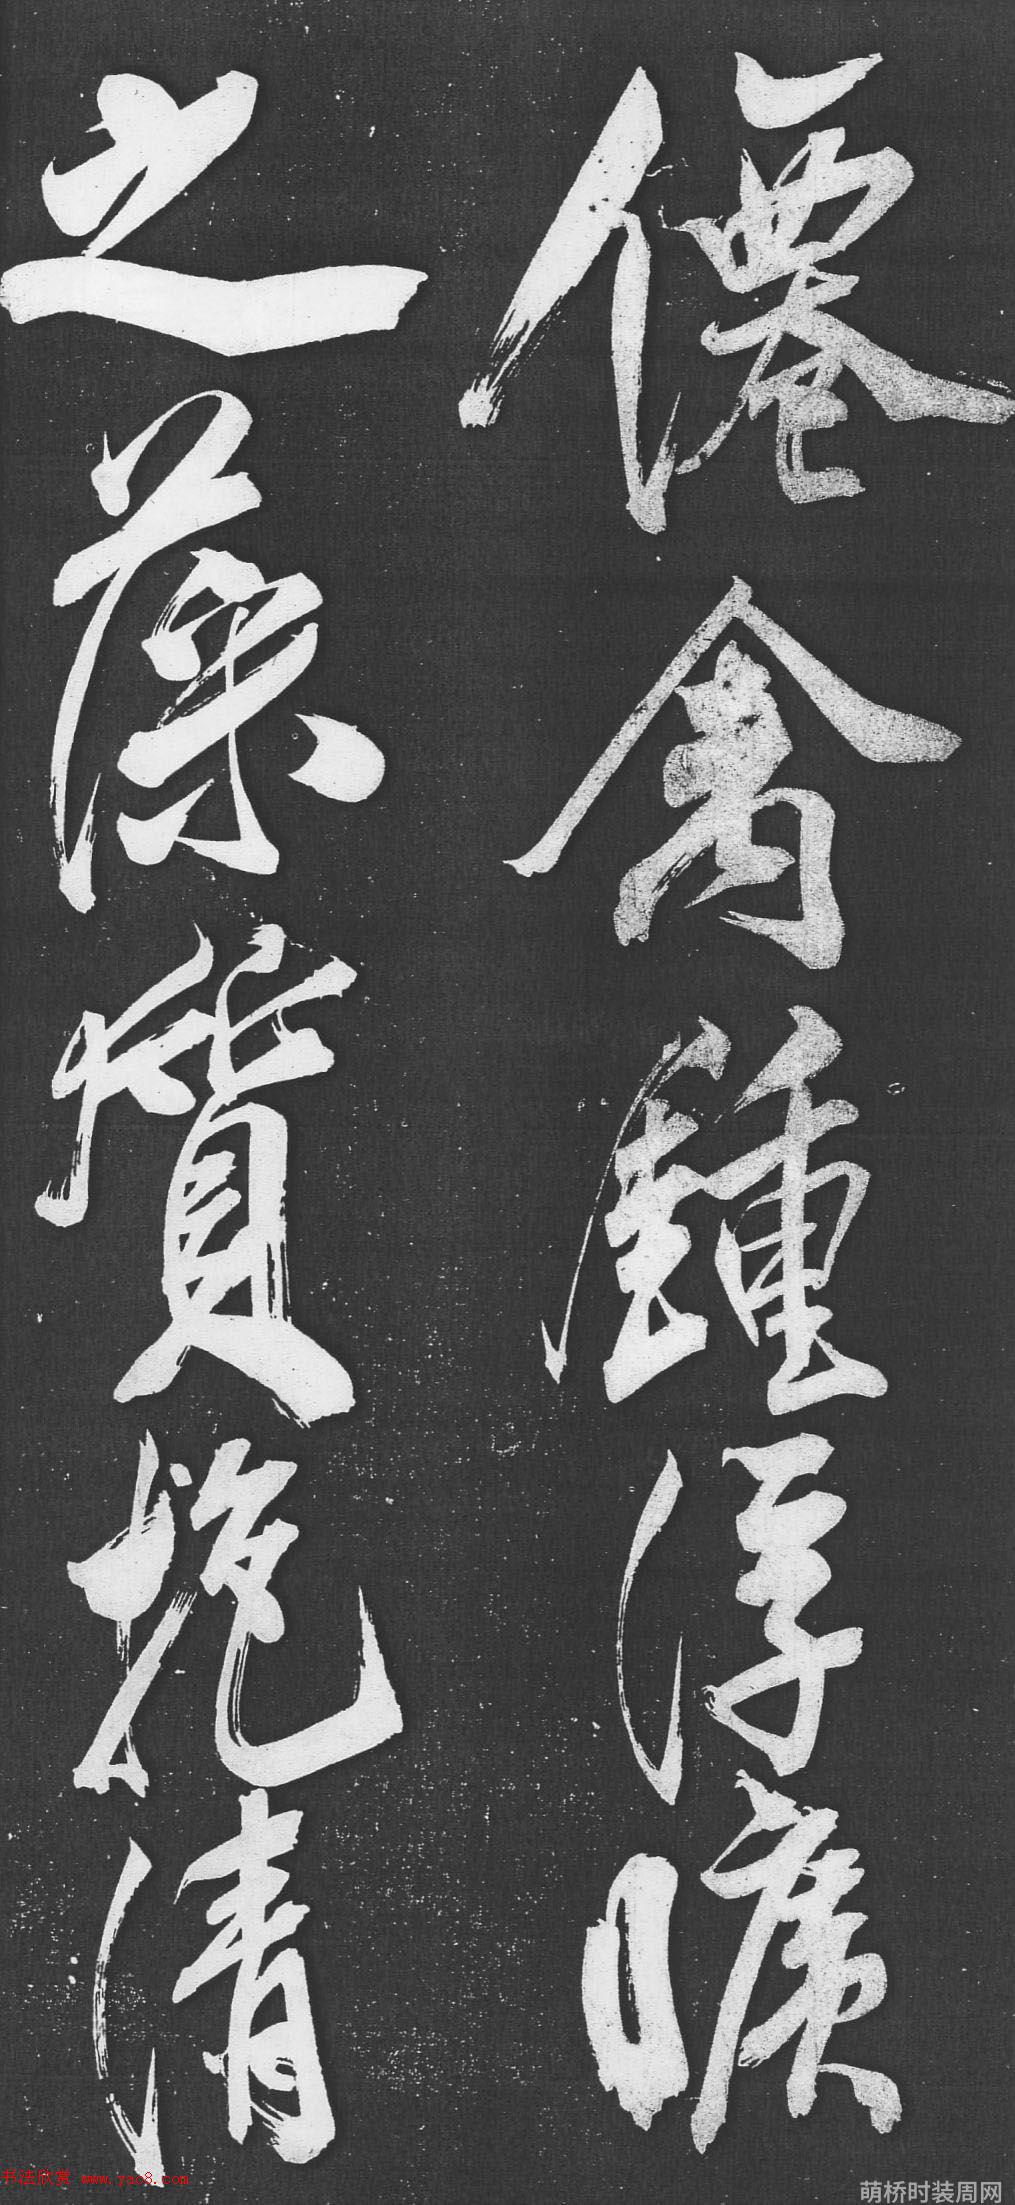 僊禽鍾浮曠
之藻質抱清
书法欣赏 www.yac8.com
萌桥时装周网